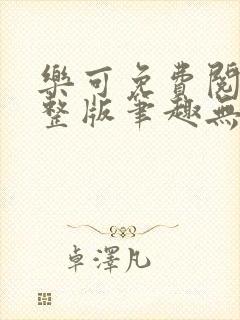 樂可免費閱
整版筆趣無
卓澤凡